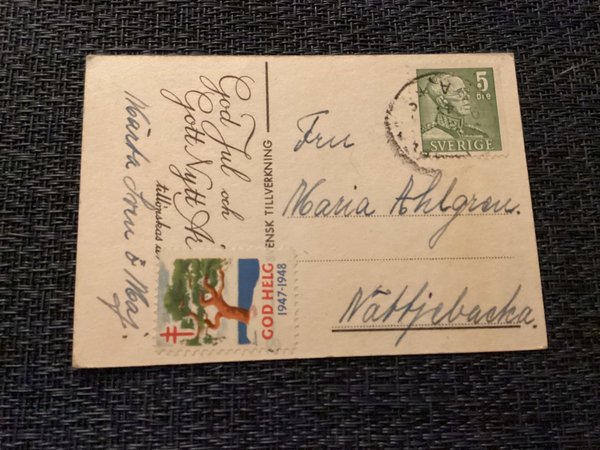 God Jul och
Gott Nytt År
tillönskas av
Märta Sven o Maj.
SVENSK TILLVERKNING
5
ÖRE
SVERIGE
Fru
Maria Ahlgren.
Nättjebacka.
GOD HELG
1947-1948